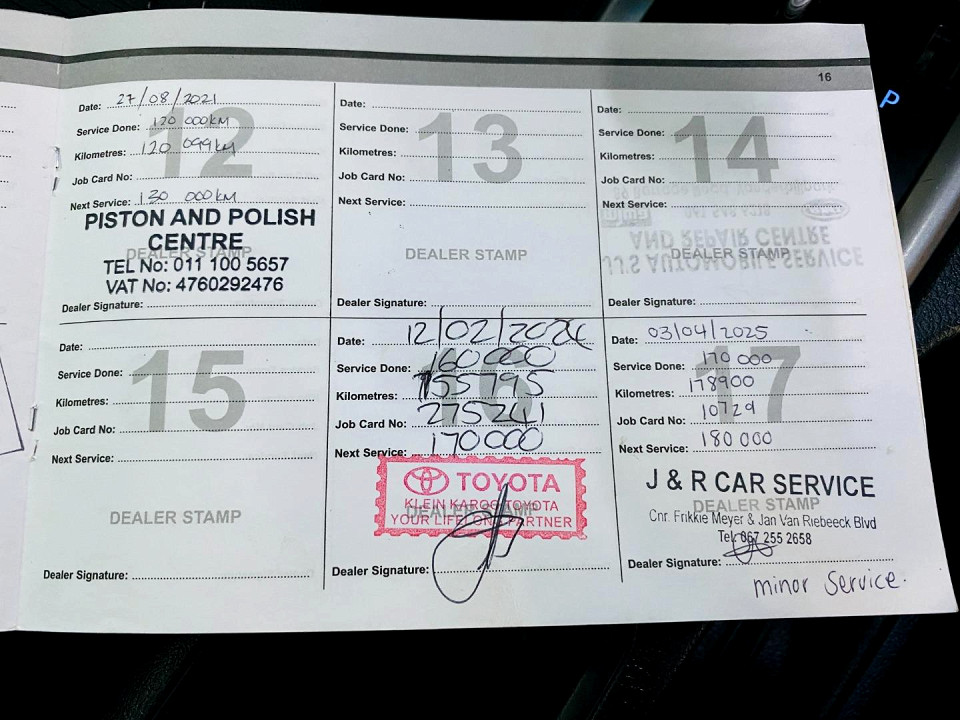 16
12
Date: 27/08/2021
Service Done: 120 000KM
Kilometres: 120 099KM
Job Card No:
Next Service: 130 000KM
PISTON AND POLISH
CENTRE
DEALER STAMP
TEL No: 011 100 5657
VAT No: 4760292476
Dealer Signature:
13
Date:
Service Done:
Kilometres:
Job Card No:
Next Service:
DEALER STAMP
Dealer Signature:
14
Date:
Service Done:
Kilometres:
Job Card No:
Next Service:
AND REPAIR CENTRE
DEALER STAMP
JJ'S AUTOMOBILE SERVICE
Dealer Signature:
15
Date:
Service Done:
Kilometres:
Job Card No:
Next Service:
DEALER STAMP
Dealer Signature:
16
Date: 12/02/2024
Service Done: 160000
Kilometres: 155795
Job Card No: 275241
Next Service: 170000
TOYOTA
KLEIN KAROO TOYOTA
DEALER STAMP
YOUR LIFELONG PARTNER
Dealer Signature:
17
Date: 03/04/2025
Service Done: 170 000
Kilometres: 178900
Job Card No: 10729
Next Service: 180 000
J & R CAR SERVICE
DEALER STAMP
Cnr. Frikkie Meyer & Jan Van Riebeeck Blvd
Tel: 067 255 2658
Dealer Signature:
minor Service.
P